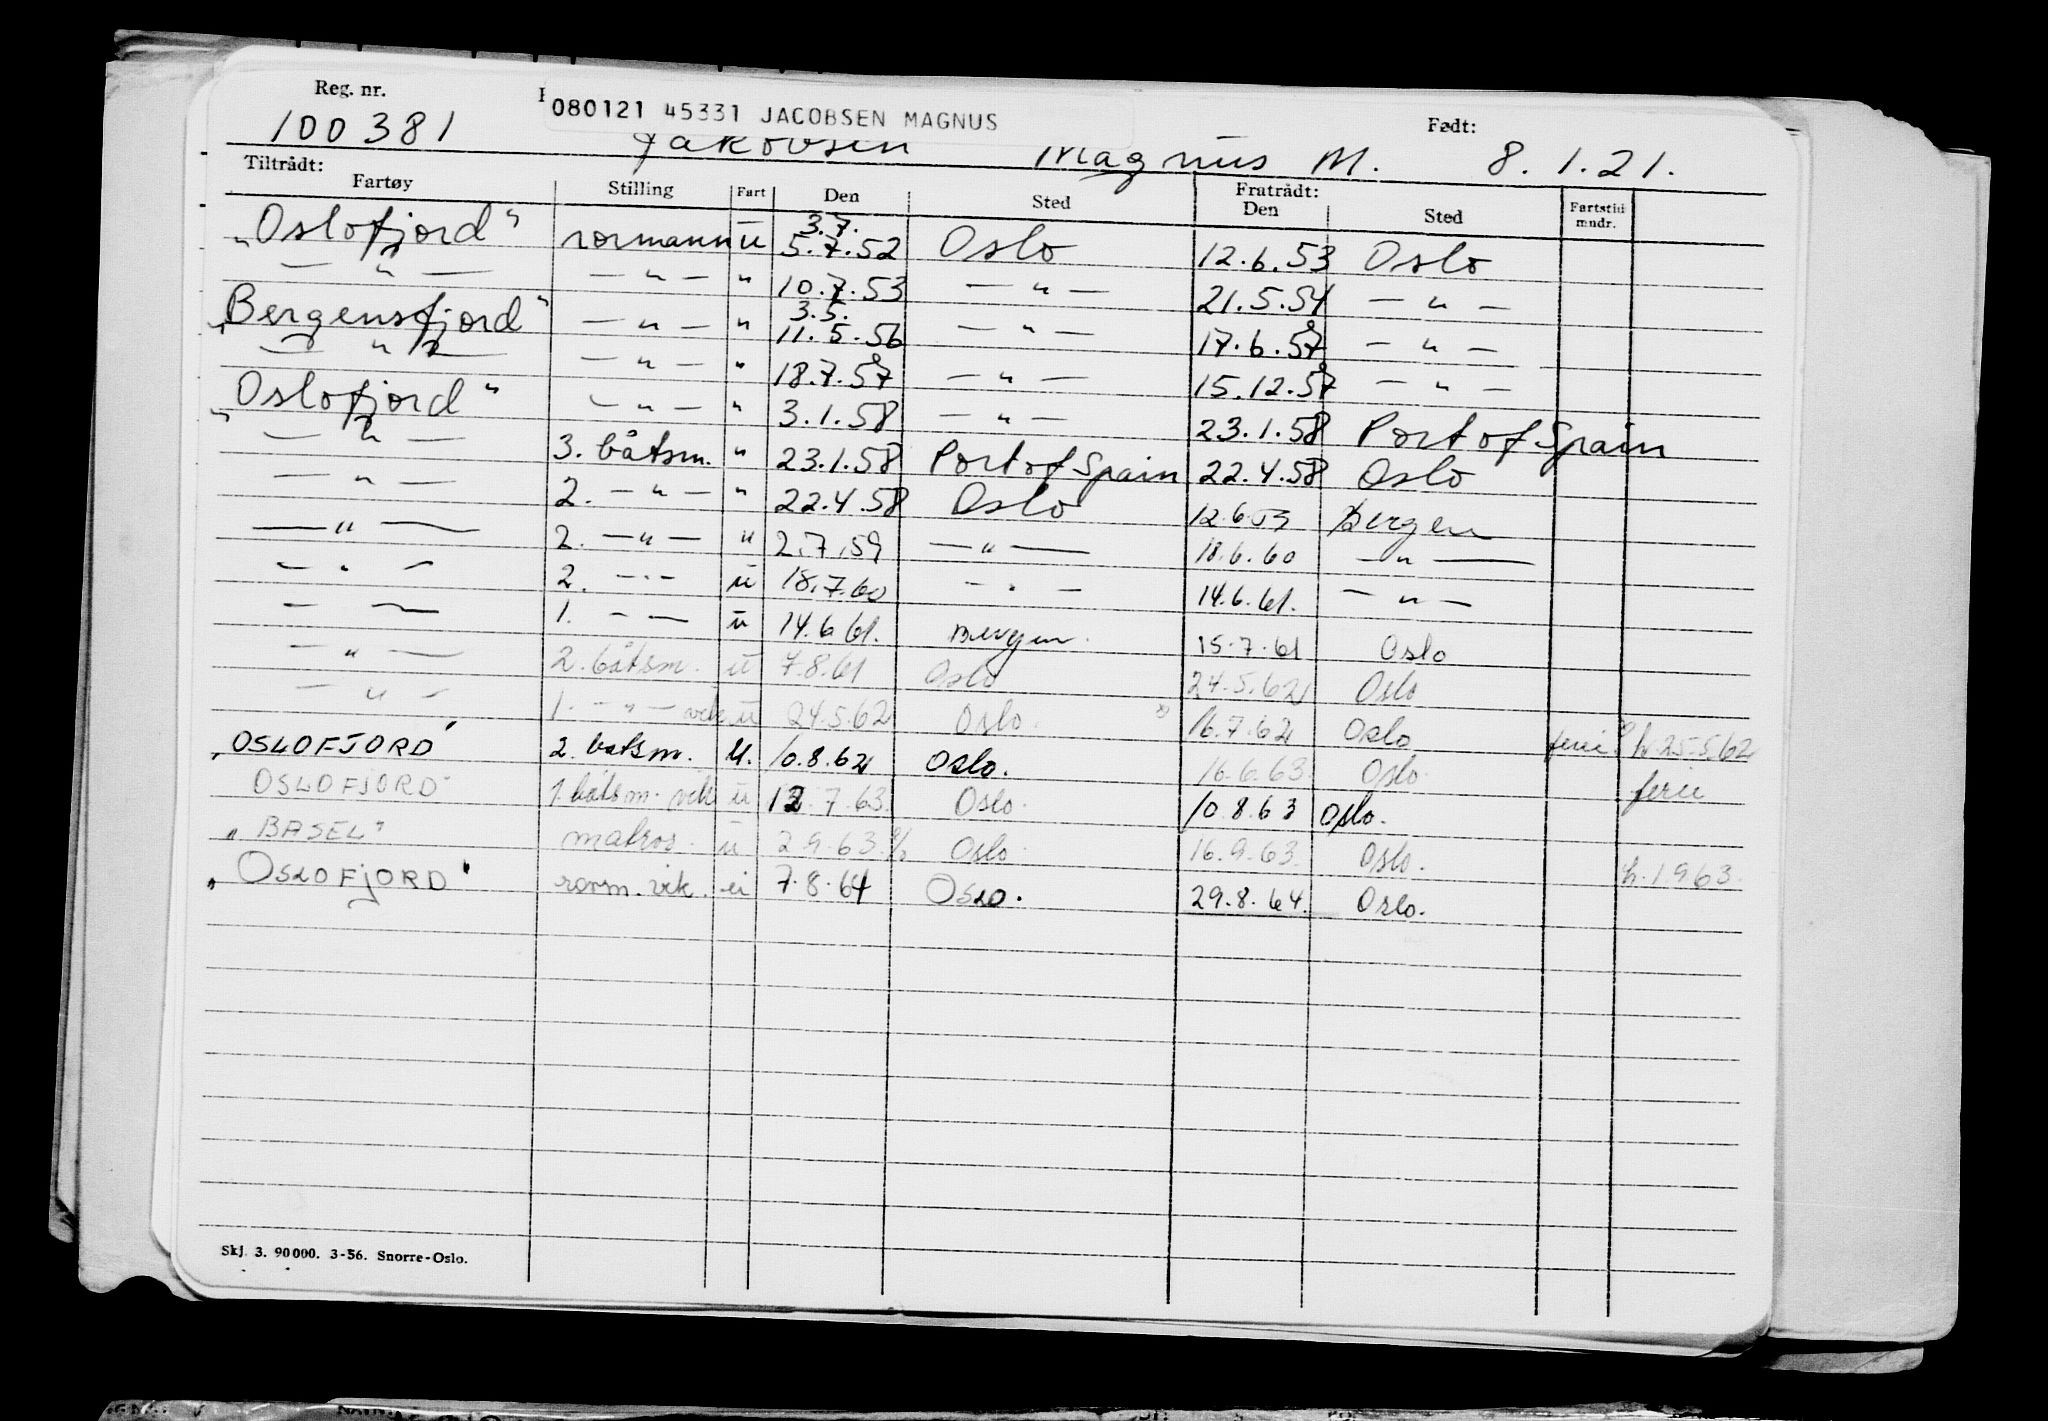 Reg. nr.
080121 45331 JACOBSEN MAGNUS
Født:
100381 Jakobsen Magnus M. 8.1.21.
Tiltrådt: Fratrådt:
Fartøy Stilling Fart Den Sted Den Sted Fartstid mndr.
3.7.
"Oslofjord" rormann u 5.7.52 Oslo 12.6.53 Oslo
— " — — " — " 10.7.53 — " — 21.5.54 — " —
3.5.
"Bergensfjord" — " — " 11.5.56 — " — 17.6.57 — " —
— " — — " — " 18.7.57 — " — 15.12.57 — " —
"Oslofjord" — " — " 3.1.58 — " — 23.1.58 Port of Spain
— " — 3. båtsm. " 23.1.58 Port of Spain 22.4.58 Oslo
— " — 2. — " — " 22.4.58 Oslo 12.6. Bergen
— " — 2. — " — " 2.7.59 — " — 18.6.60 — " —
— " — 2. — " — u 18.7.60 — " — 14.6.61. — " —
— — 1. — — u 14.6.61. Bergen. 15.7.61 Oslo
— " — 2. båtsm. u 7.8.61 Oslo 24.5.62 Oslo
— " — 1. — " — vik. u 24.5.62 Oslo. 16.7.62 Oslo ferie h. 25.5.62
"OSLOFJORD" 2. batsm. u. 10.8.62 Oslo. 16.6.63. Oslo. ferie
OSLOFJORD" 1. båtsm. vik u 12.7.63. Oslo. 10.8.63 Oslo.
"BASEL" matros. u 2.9.63. Oslo. 16.9.63. Oslo. h. 1.9.63.
"OSLOFJORD" rorm. vik. u 7.8.64 Oslo. 29.8.64. Oslo.
Skj. 3. 90 000. 3-56. Snorre-Oslo.